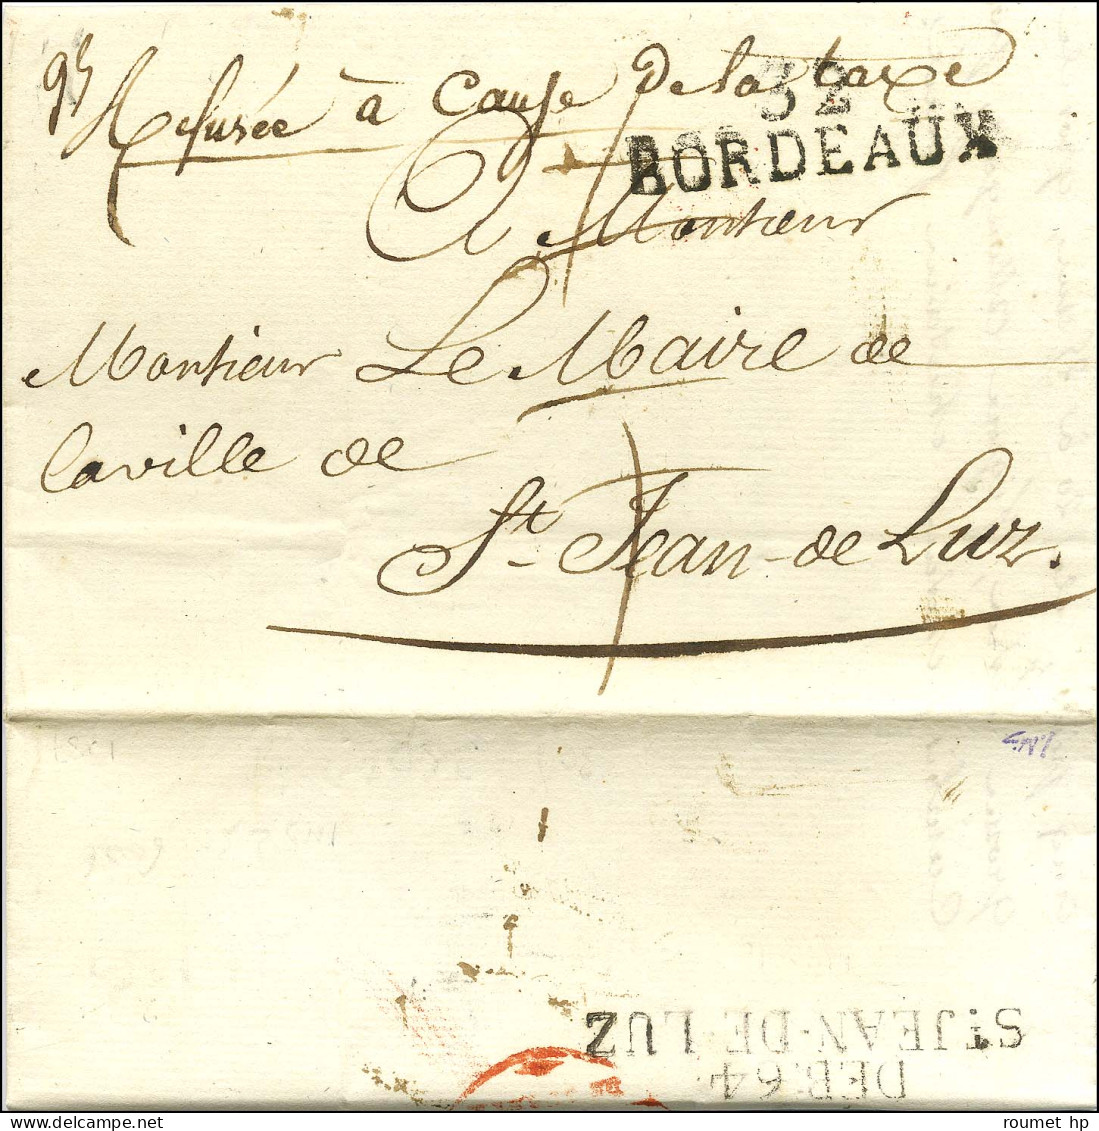 Refusée à cause de la taxe
32
BORDEAUX
A Monsieur
Monsieur Le Maire de
la ville de
St Jean-de Luz.
DEB. 64
ST JEAN-DE-LUZ
roumet hp